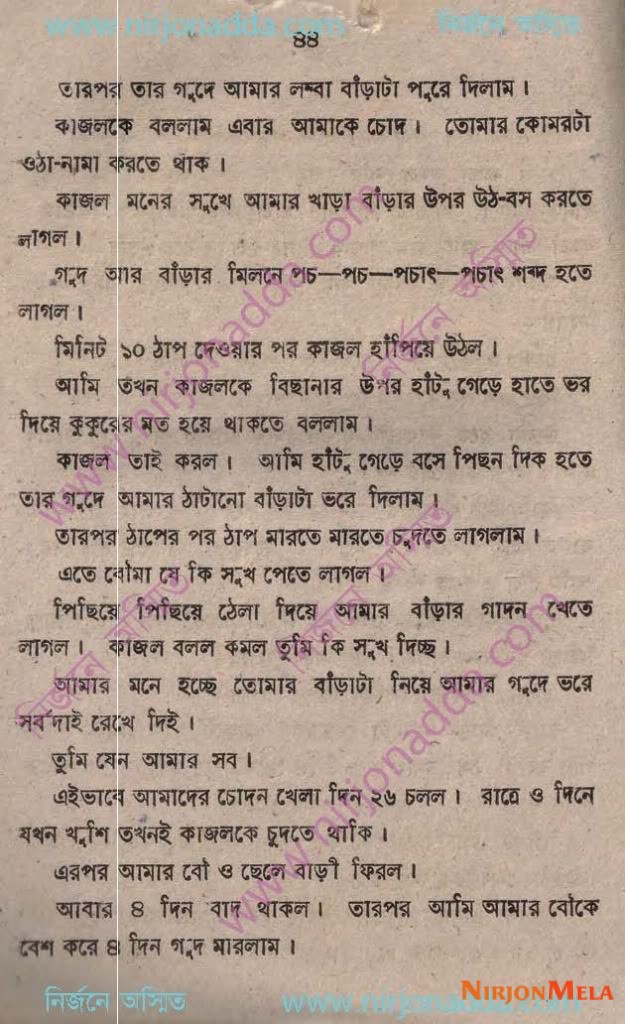 www.nirjonadda.com
নির্জনে অস্মিত
৪৪
তারপর তার গুদে আমার লম্বা বাঁড়াটা পুরে দিলাম।
কাজলকে বললাম এবার আমাকে চোদ। তোমার কোমরটা
ওঠা-নামা করতে থাক।
কাজল মনের সুখে আমার খাড়া বাঁড়ার উপর উঠ-বস করতে
লাগল।
গুদ আর বাঁড়ার মিলনে পচ—পচ—পচাৎ—পচাৎ শব্দ হতে
লাগল।
মিনিট ১০ ঠাপ দেওয়ার পর কাজল হাঁপিয়ে উঠল।
আমি তখন কাজলকে বিছানার উপর হাঁটু গেড়ে হাতে ভর
দিয়ে কুকুরের মত হয়ে থাকতে বললাম।
কাজল তাই করল। আমি হাঁটু গেড়ে বসে পিছন দিক হতে
তার গুদে আমার ঠাটানো বাঁড়াটা ভরে দিলাম।
তারপর ঠাপের পর ঠাপ মারতে মারতে চুদতে লাগলাম।
এতে বৌমা যে কি সুখ পেতে লাগল।
পিছিয়ে পিছিয়ে ঠেলা দিয়ে আমার বাঁড়ার গাদন খেতে
লাগল। কাজল বলল কমল তুমি কি সুখ দিচ্ছ।
আমার মনে হচ্ছে তোমার বাঁড়াটা নিয়ে আমার গুদে ভরে
সর্বদাই রেখে দিই।
তুমি যেন আমার সব।
এইভাবে আমাদের চোদন খেলা দিন ২৬ চলল। রাত্রে ও দিনে
যখন খুশি তখনই কাজলকে চুদতে থাকি।
এরপর আমার বৌ ও ছেলে বাড়ী ফিরল।
আবার ৪ দিন বাদ থাকল। তারপর আমি আমার বৌকে
বেশ করে ৪ দিন গুদ মারলাম।
নির্জনে অস্মিত
www.nirjonadda.com
NIRJONMELA